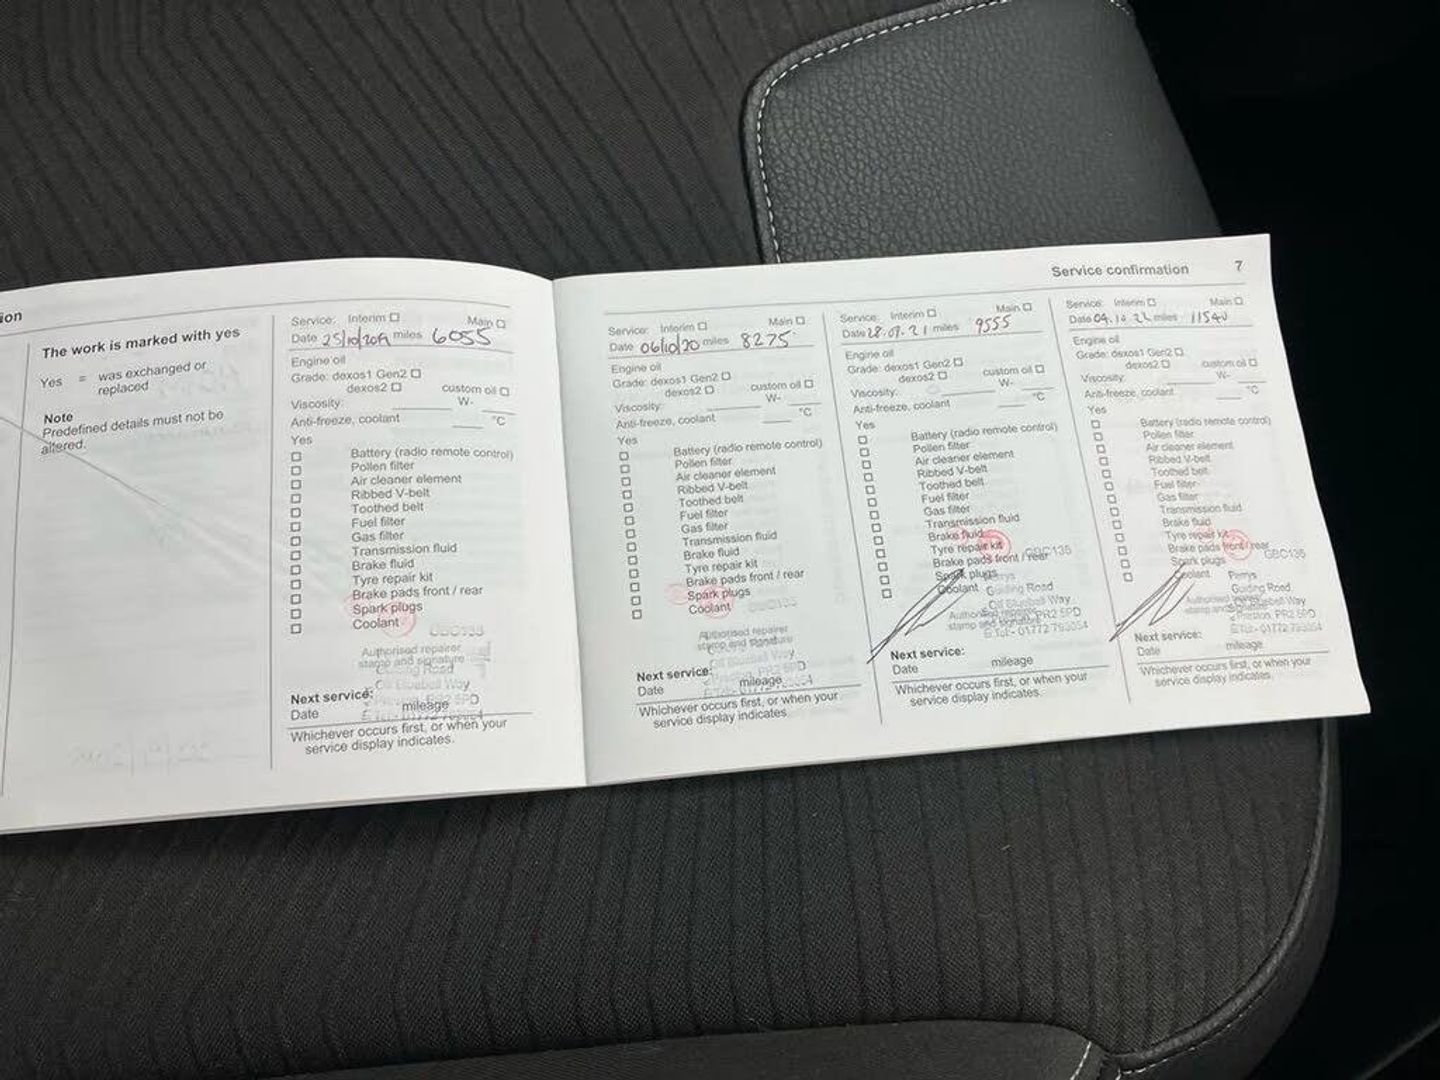 ion
The work is marked with yes
Yes = was exchanged or
replaced
Note
Predefined details must not be
altered.
Service: Interim Main
Date 25/10/2019 miles 6055
Engine oil
Grade: dexos1 Gen2
dexos2 custom oil
Viscosity: W-
Anti-freeze, coolant °C
Yes
Battery (radio remote control)
Pollen filter
Air cleaner element
Ribbed V-belt
Toothed belt
Fuel filter
Gas filter
Transmission fluid
Brake fluid
Tyre repair kit
Brake pads front / rear
Spark plugs
Coolant
GBC135
Authorised repairer
stamp and signature
Off Bluebell Way
Next service:
Date mileage
Whichever occurs first, or when your
service display indicates.
Service confirmation 7
Service: Interim Main
Date 06/10/20 miles 8275
Engine oil
Grade: dexos1 Gen2
dexos2 custom oil
Viscosity: W-
Anti-freeze, coolant °C
Yes
Battery (radio remote control)
Pollen filter
Air cleaner element
Ribbed V-belt
Toothed belt
Fuel filter
Gas filter
Transmission fluid
Brake fluid
Tyre repair kit
Brake pads front / rear
Spark plugs
Coolant
GBC135
Authorised repairer
stamp and signature
Off Bluebell Way
Next service:
Date mileage
Whichever occurs first, or when your
service display indicates.
Service: Interim Main
Date 28.09.21 miles 9555
Engine oil
Grade: dexos1 Gen2
dexos2 custom oil
Viscosity: W-
Anti-freeze, coolant °C
Yes
Battery (radio remote control)
Pollen filter
Air cleaner element
Ribbed V-belt
Toothed belt
Fuel filter
Gas filter
Transmission fluid
Brake fluid
Tyre repair kit GBC135
Brake pads front / rear
Spark plugs Perrys
Coolant Guilding Road
Off Bluebell Way
Authorised repairer PR2 5PD
stamp and signature Tel:- 01772 793054
Next service:
Date mileage
Whichever occurs first, or when your
service display indicates.
Service: Interim Main
Date 04.10.22 miles 11540
Engine oil
Grade: dexos1 Gen2
dexos2 custom oil
Viscosity: W-
Anti-freeze, coolant °C
Yes
Battery (radio remote control)
Pollen filter
Air cleaner element
Ribbed V-belt
Toothed belt
Fuel filter
Gas filter
Transmission fluid
Brake fluid
Tyre repair kit
Brake pads front / rear GBC135
Spark plugs
Coolant Perrys
Guilding Road
Authorised repairer
stamp and Bluebell Way
Preston, PR2 5PD
Tel:- 01772 793054
Next service:
Date mileage
Whichever occurs first, or when your
service display indicates.